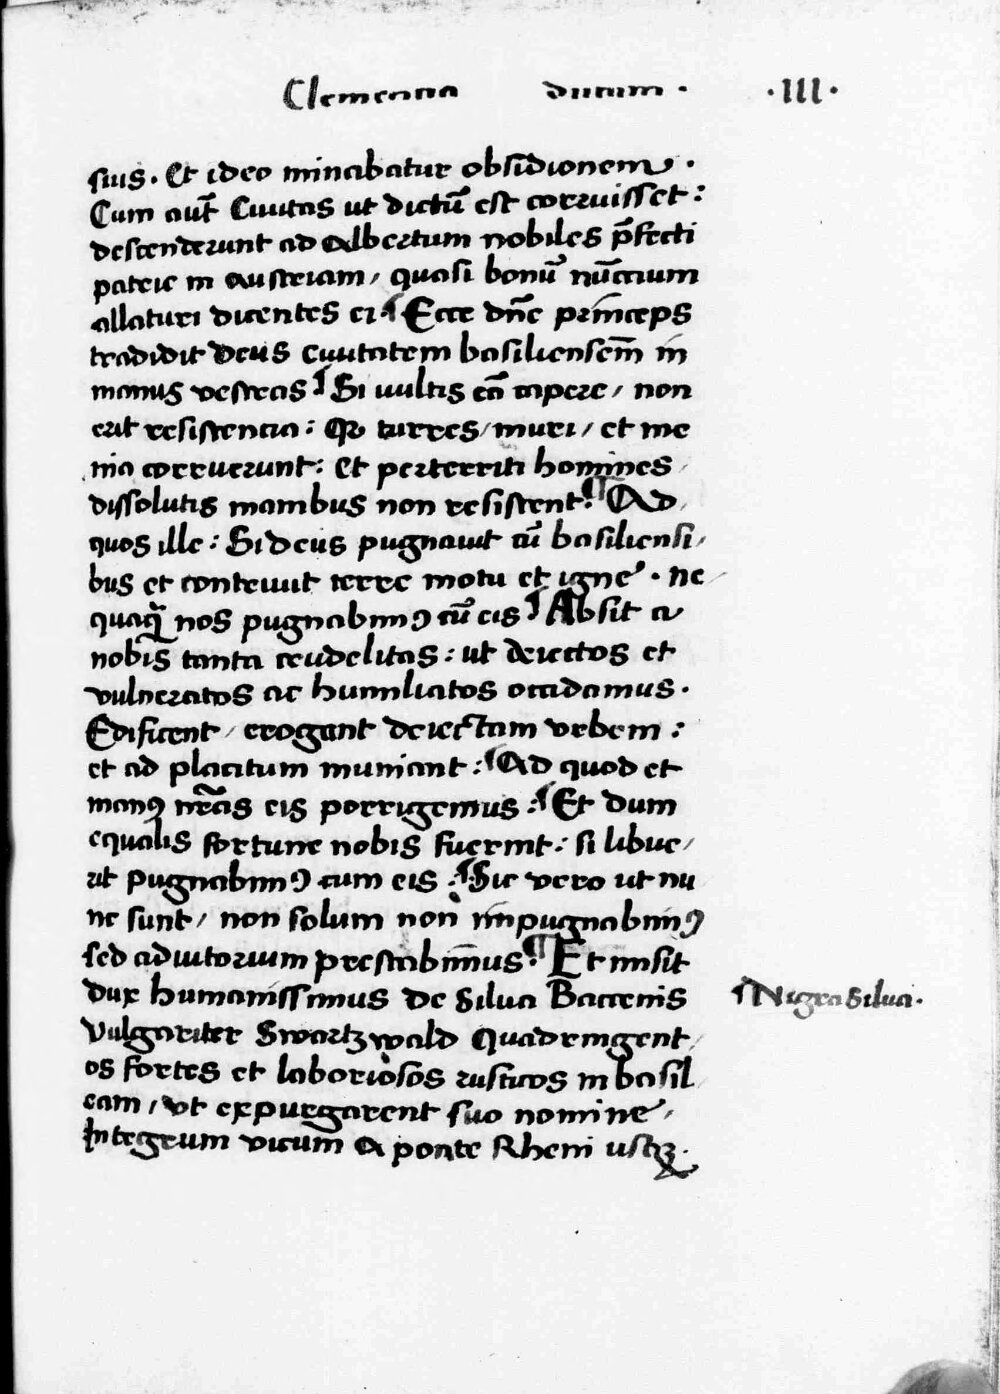 Clementia ducum · ·III·
suis. Et ideo minabatur obsidionem ·
Cum aut̄ Ciuitas ut dictū est corruisset :
descenderunt ad Albertum nobiles p̄fecti
patrie in Austriam / quasi bonū nūctium
allaturi dicentes ei ¶ Ecce dn̄e princeps
tradidit Deus ciuitatem basiliensem̄ in
manus vestras ¶ Si uultis eā capere / non
erit resistencia : Qr turres / muri / et me
nia corruerunt : Et perterriti homines
dissolutis manibus non resistent : ¶ Ad
quos ille : Si deus pugnauit cū basiliensi/
bus et contriuit terre motu et igne · ne/
quaq̄ nos pugnabimꝰ cū eis ¶ Absit a
nobis tanta crudelitas : ut deiectos et
vulneratos ac humiliatos occidamus ·
Edificent / erogant deiectam vrbem :
et ad placitum muniant : ¶ Ad quod et
manꝰ nr̄as eis porrigemus : ¶ Et dum
equalis fortune nobis fuerint : si libue/
rit pugnabimꝰ cum eis : ¶ Sic vero ut nu
nc sunt / non solum non impugnabimꝰ
sed adiutorium prestabim̄us : ¶ Et misit
dux humanissimus de Silua Baccenis
¶ Nigra Silua ·
Vulgariter Swartzwald Quadringent/
os fortes et laboriosos rusticos in basil/
eam / vt expurgarent suo nomine /
Integrum vicum a ponte Rheni usqꝫ ·